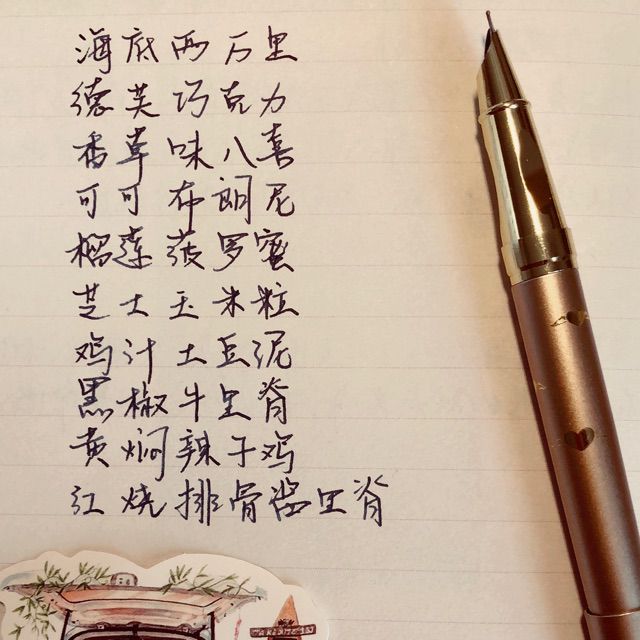 海底两万里
德芙巧克力
香草味八喜
可可布朗尼
榴莲菠罗蜜
芝士玉米粒
鸡汁土豆泥
黑椒牛里脊
黄焖辣子鸡
红烧排骨酱里脊